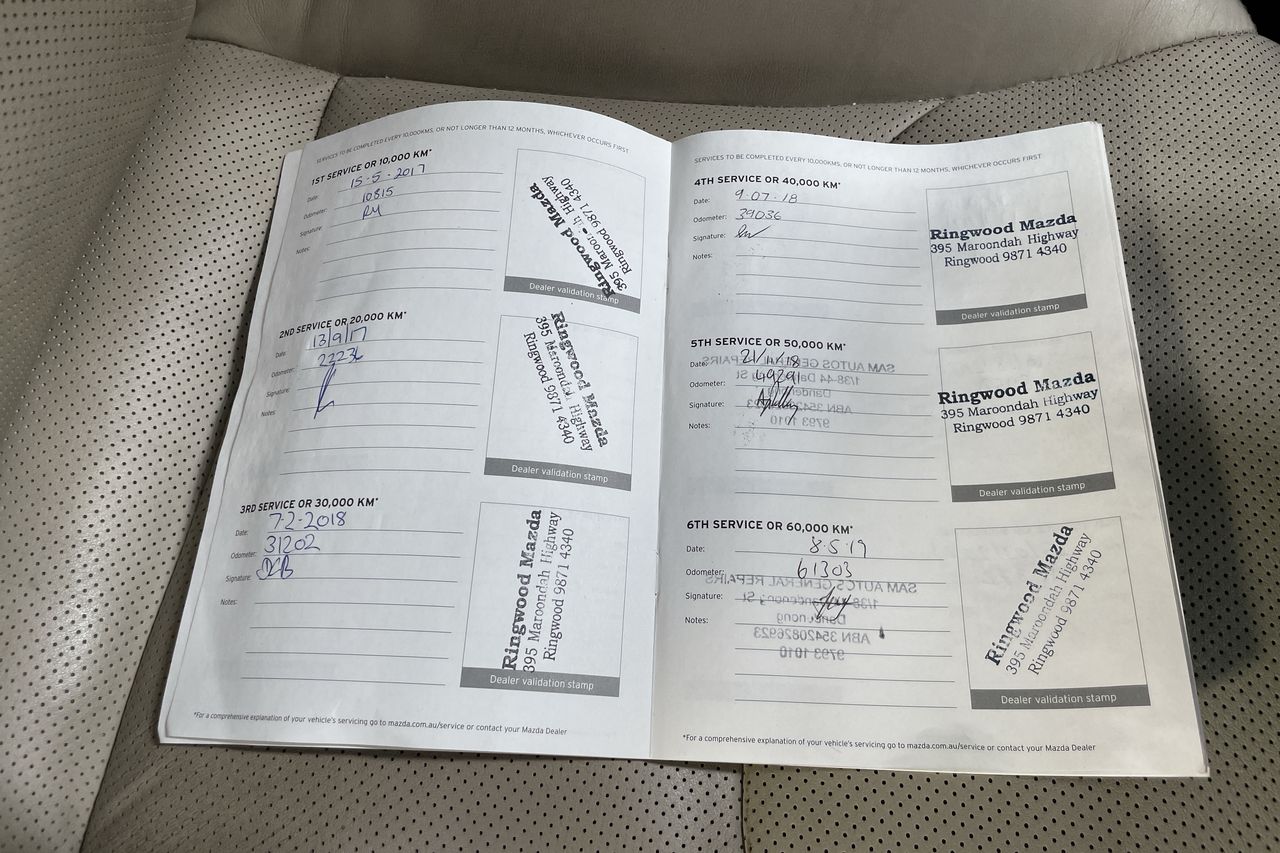 SERVICES TO BE COMPLETED EVERY 10,000KMS, OR NOT LONGER THAN 12 MONTHS, WHICHEVER OCCURS FIRST
1ST SERVICE OR 10,000 KM*
Date: 15-5-2017
Odometer: 10815
Signature: RM
Notes:
Ringwood Mazda
395 Maroondah Highway
Ringwood 9871 4340
Dealer validation stamp
2ND SERVICE OR 20,000 KM*
Date: 13/9/17
Odometer: 22236
Signature:
Notes:
Ringwood Mazda
395 Maroondah Highway
Ringwood 9871 4340
Dealer validation stamp
3RD SERVICE OR 30,000 KM*
Date: 7-2-2018
Odometer: 31202
Signature: DCB
Notes:
Ringwood Mazda
395 Maroondah Highway
Ringwood 9871 4340
Dealer validation stamp
*For a comprehensive explanation of your vehicle's servicing go to mazda.com.au/service or contact your Mazda Dealer
SERVICES TO BE COMPLETED EVERY 10,000KMS, OR NOT LONGER THAN 12 MONTHS, WHICHEVER OCCURS FIRST
4TH SERVICE OR 40,000 KM*
Date: 9-07-18
Odometer: 39036
Signature:
Notes:
Ringwood Mazda
395 Maroondah Highway
Ringwood 9871 4340
Dealer validation stamp
5TH SERVICE OR 50,000 KM*
Date: 21/11/18
Odometer: 49291
Signature:
Notes:
SAM AUTOS GENERAL REPAIRS
1/38-44 Dandenong St
Dandenong
9793 1010
Ringwood Mazda
395 Maroondah Highway
Ringwood 9871 4340
Dealer validation stamp
6TH SERVICE OR 60,000 KM*
Date: 8-5-19
Odometer: 61303
Signature:
Notes:
SAM AUTOS GENERAL REPAIRS
Dandenong St
Dandenong
ABN 35420826923
9793 1010
Ringwood Mazda
395 Maroondah Highway
Ringwood 9871 4340
Dealer validation stamp
*For a comprehensive explanation of your vehicle's servicing go to mazda.com.au/service or contact your Mazda Dealer